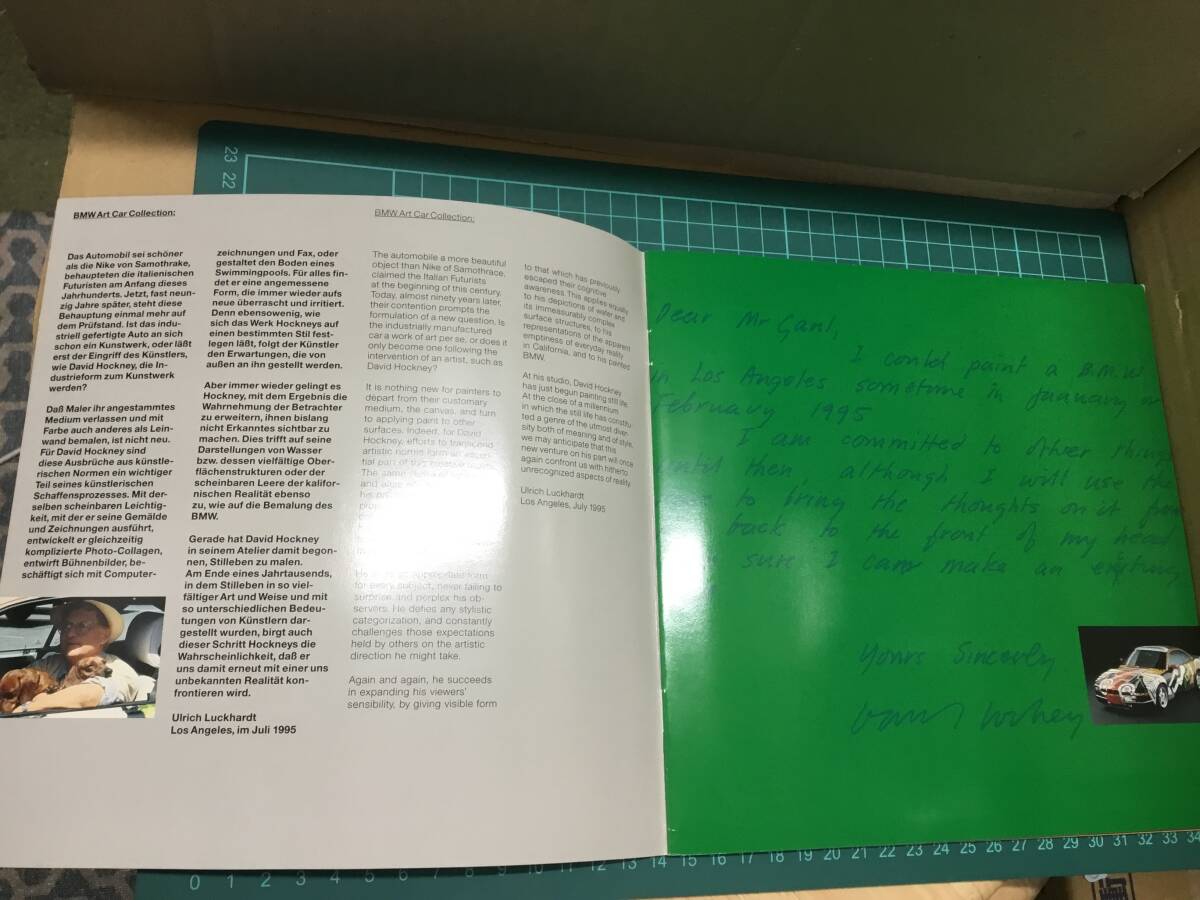 BMW Art Car Collection:
Das Automobil sei schöner
als die Nike von Samothrake,
behaupteten die italienischen
Futuristen am Anfang dieses
Jahrhunderts. Jetzt, fast neun-
zig Jahre später, steht diese
Behauptung einmal mehr auf
dem Prüfstand. Ist das indu-
striell gefertigte Auto an sich
schon ein Kunstwerk, oder läßt
erst der Eingriff des Künstlers,
wie David Hockney, die In-
dustrieform zum Kunstwerk
werden?
Daß Maler ihr angestammtes
Medium verlassen und mit
Farbe auch anderes als Lein-
wand bemalen, ist nicht neu.
Für David Hockney sind
diese Ausbrüche aus künstle-
rischen Normen ein wichtiger
Teil seines künstlerischen
Schaffensprozesses. Mit der-
selben scheinbaren Leichtig-
keit, mit der er seine Gemälde
und Zeichnungen ausführt,
entwickelt er gleichzeitig
komplizierte Photo-Collagen,
entwirft Bühnenbilder, be-
schäftigt sich mit Computer-
zeichnungen und Fax, oder
gestaltet den Boden eines
Swimmingpools. Für alles fin-
det er eine angemessene
Form, die immer wieder aufs
neue überrascht und irritiert.
Denn ebensowenig, wie
sich das Werk Hockneys auf
einen bestimmten Stil fest-
legen läßt, folgt der Künstler
den Erwartungen, die von
außen an ihn gestellt werden.
Aber immer wieder gelingt es
Hockney, mit dem Ergebnis die
Wahrnehmung der Betrachter
zu erweitern, ihnen bislang
nicht Erkanntes sichtbar zu
machen. Dies trifft auf seine
Darstellungen von Wasser
bzw. dessen vielfältige Ober-
flächenstrukturen oder der
scheinbaren Leere der kalifor-
nischen Realität ebenso
zu, wie auf die Bemalung des
BMW.
Gerade hat David Hockney
in seinem Atelier damit begon-
nen, Stilleben zu malen.
Am Ende eines Jahrtausends,
in dem Stilleben in so viel-
fältiger Art und Weise und mit
so unterschiedlichen Bedeu-
tungen von Künstlern dar-
gestellt wurden, birgt auch
dieser Schritt Hockneys die
Wahrscheinlichkeit, daß er
uns damit erneut mit einer uns
unbekannten Realität kon-
frontieren wird.
Ulrich Luckhardt
Los Angeles, im Juli 1995
BMW Art Car Collection:
The automobile a more beautiful
object than Nike of Samothrace,
claimed the Italian Futurists
at the beginning of this century.
Today, almost ninety years later,
their contention prompts the
formulation of a new question. Is
the industrially manufactured
car a work of art per se, or does it
only become one following the
intervention of an artist, such as
David Hockney?
It is nothing new for painters to
depart from their customary
medium, the canvas, and turn
to applying paint to other
surfaces. Indeed, for David
Hockney, efforts to transcend
artistic norms form an essen-
tial part of
The same
He an appropriate form
for every subject, never failing to
surprise and perplex his ob-
servers. He defies any stylistic
categorization, and constantly
challenges those expectations
held by others on the artistic
direction he might take.
Again and again, he succeeds
in expanding his viewers'
sensibility, by giving visible form
to that which has previously
escaped their cognitive
awareness. This applies equally
to his depictions of water and
its immeasurably complex
surface structures, to his
representations of the apparent
emptiness of everyday reality
in California, and to his painted
BMW.
At his studio, David Hockney
has just begun painting still life.
At the close of a millennium
in which the still life has constitu-
ted a genre of the utmost diver-
sity both of meaning and of style,
we may anticipate that this
new venture on his part will once
again confront us with hitherto
unrecognized aspects of reality.
Ulrich Luckhardt
Los Angeles, July 1995
Dear Mr
I could paint a B.M.W
in Los Angeles sometime in January or
February 1995
I am committed to other things
until then although I will use the
to bring the thoughts on it from
back to the front of my head
sure I can make an exciting
Yours Sincerely
David Hockney
23
22
0 1 2 3 4 5 6 7 8 9 10 11 12 13 14 15 16 17 18 19 20 21 22 23 24 25 26 27 28 29 30 31 32 33 34